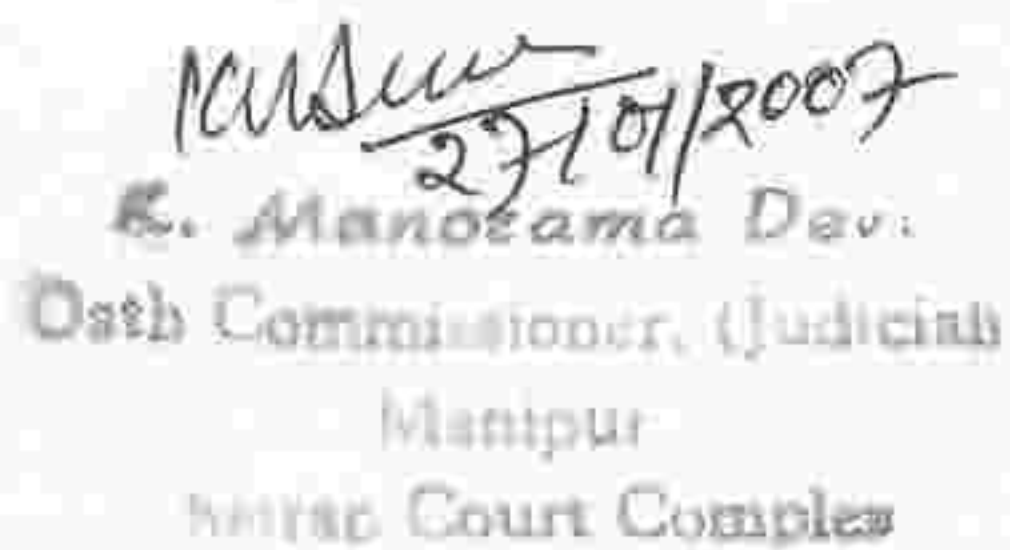 27/01/2007
K. Manorama Devi
Oath Commissioner, (Judicial)
Manipur
Court Complex